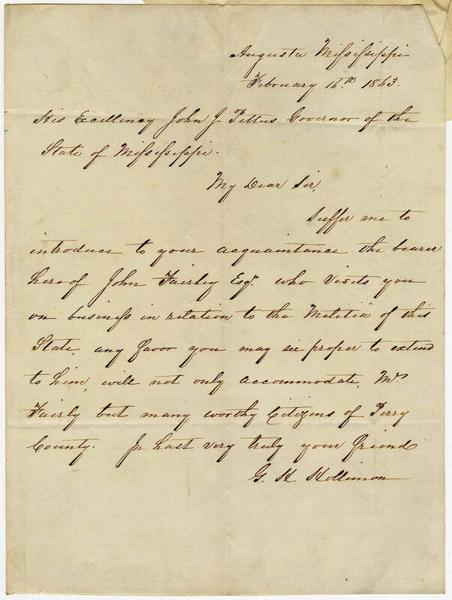 Augusta Mississippi
February 16th 1863.
His Excellency John J. Pettus Governor of the
State of Mississippi.
My Dear Sir,
Suffer me to
introduce to your acquaintance the bearer
hereof John Fairley Esqr. who visits you
on business in relation to the Militia of this
State, any favor you may see proper to extend
to him, will not only accommodate, Mr.
Fairly but many worthy Citizens of Perry
County. In hast very truly your friend
G. H. Hollimon